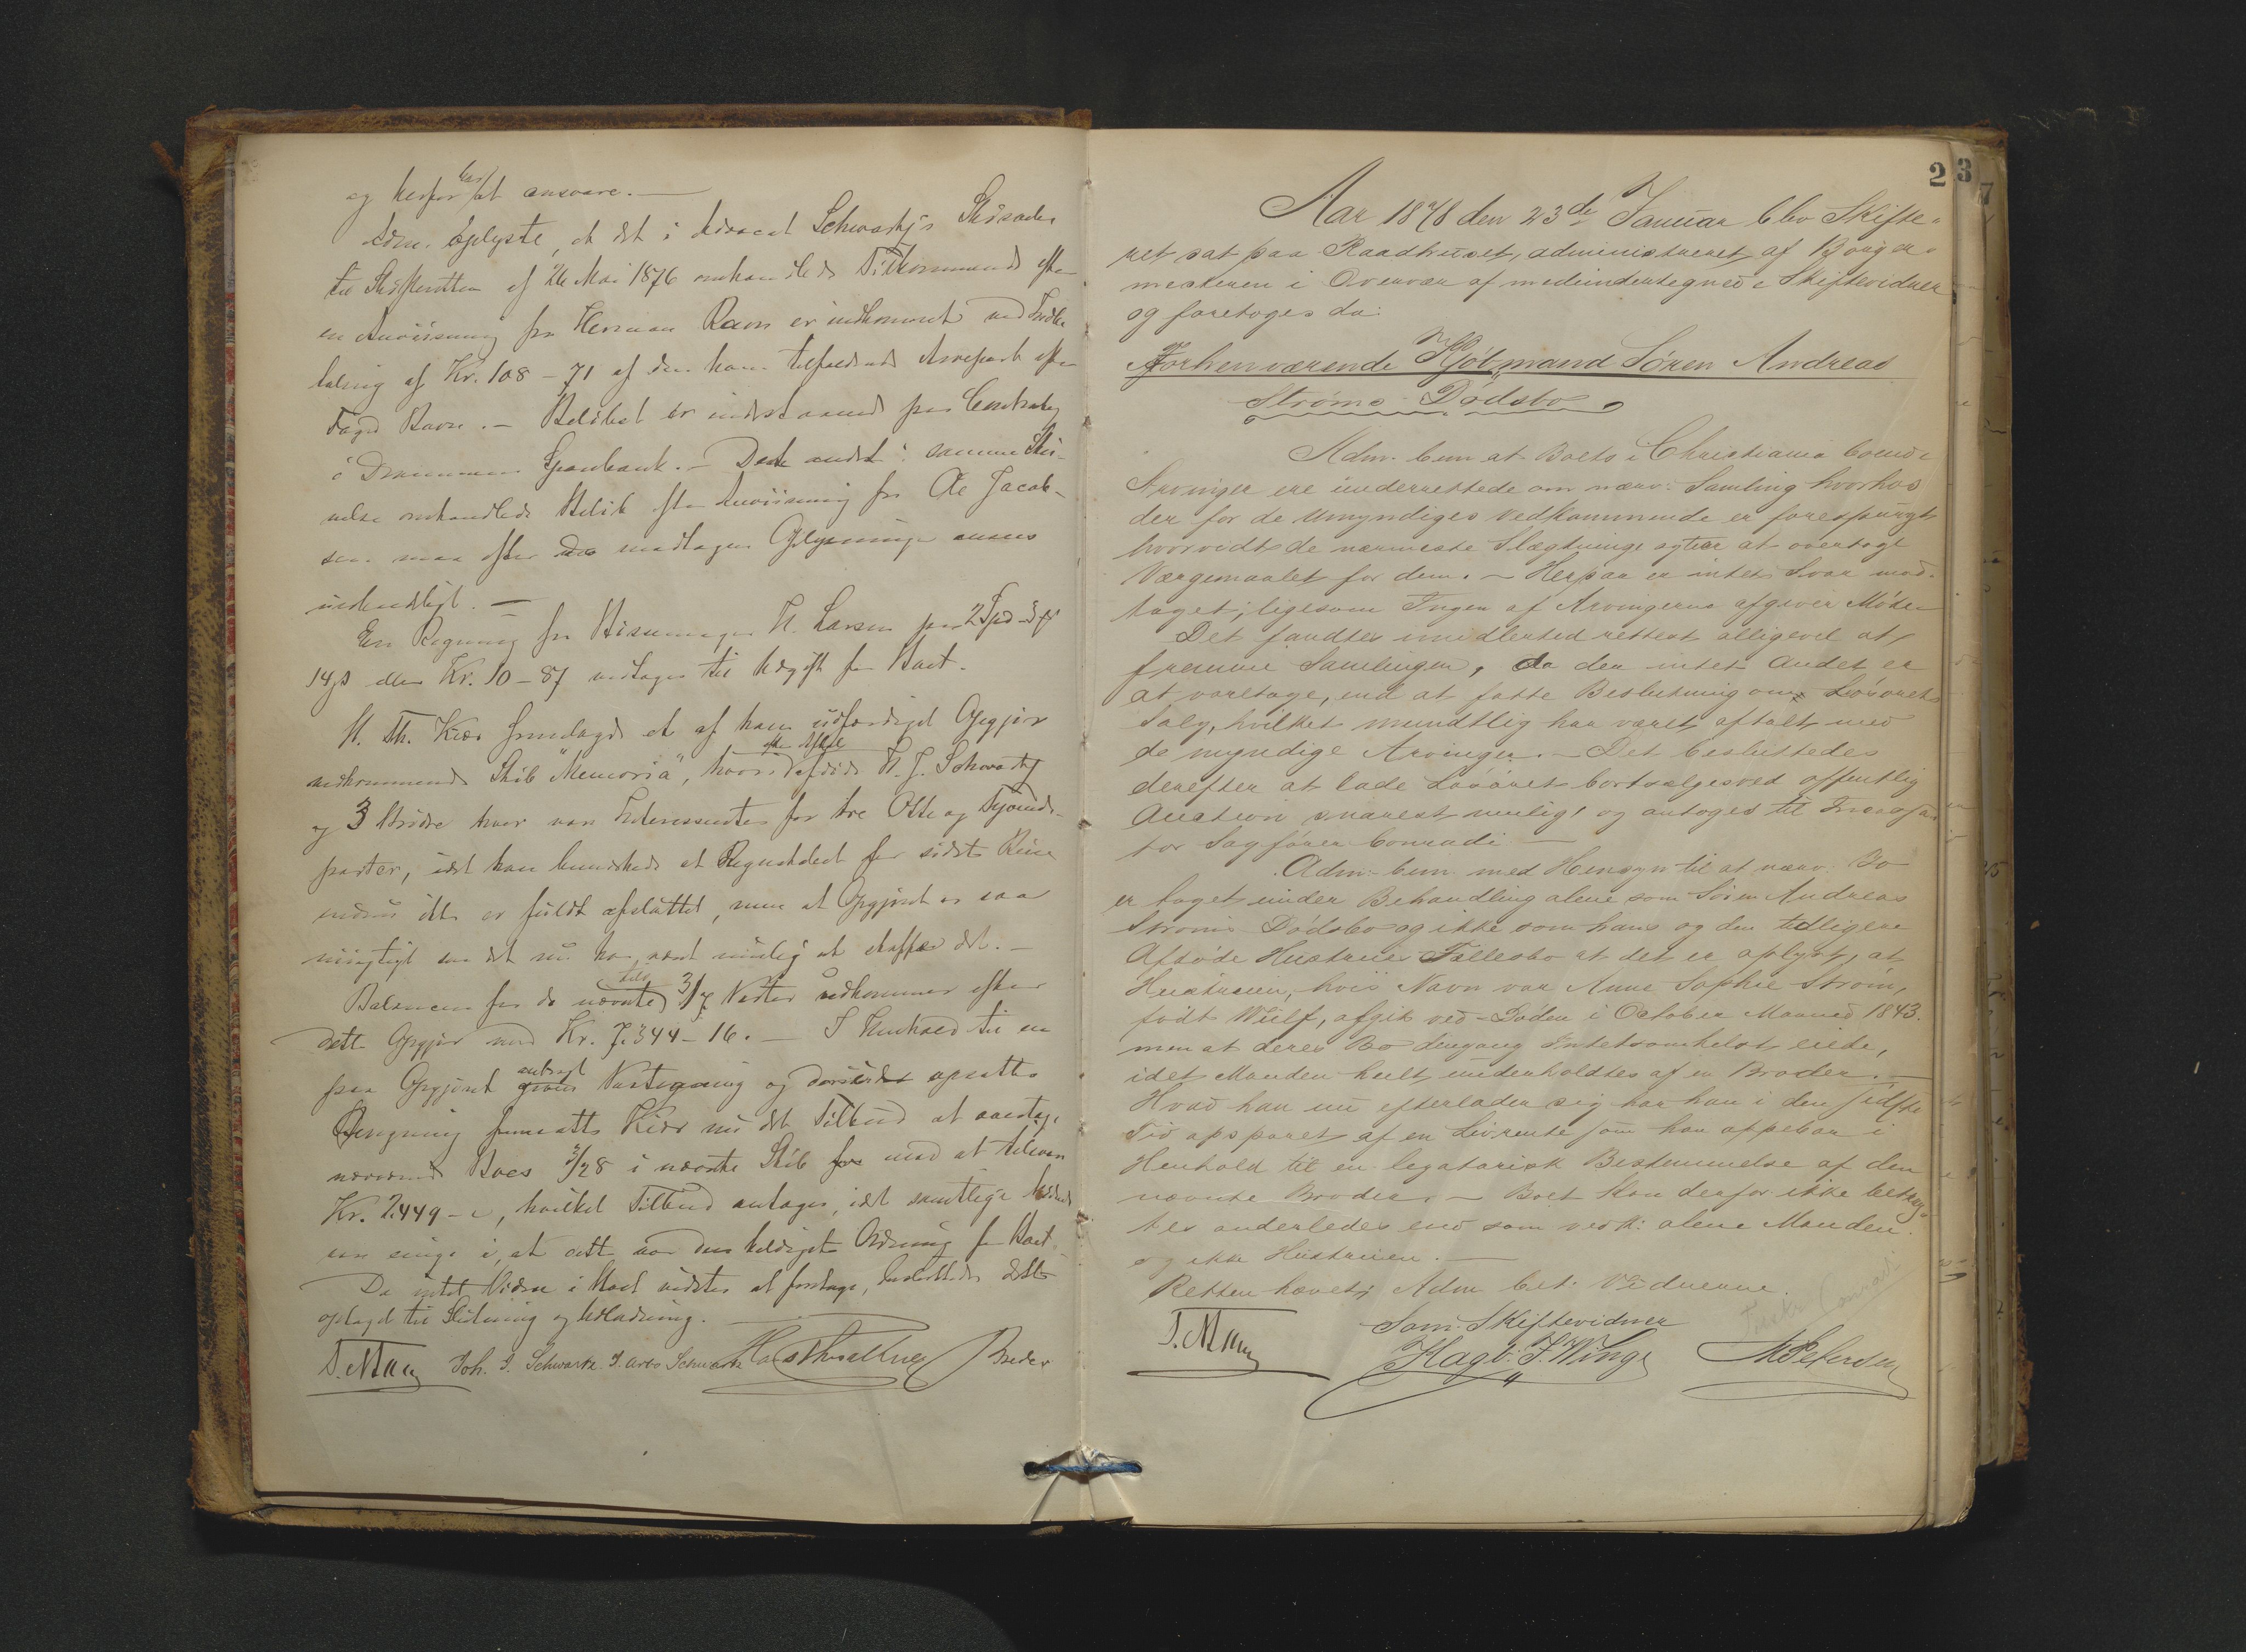 og herfor har at ansvare. —
Adm. oplyste, at det i Advocat Schwartz's Skrivelse
til Skifteretten af 26 Mai 1876 omhandlede Tilkommende efter
en Anviisning fra Herman Ravn er indkommet ved Indbe
taling af Kr. 108 - 71 af den ham tilfaldende Arvepart efter
Foged Ravn. — Beløbet er indestaaende paa
i Drammens Sparebank. — Det andet i samme Skri-
velse omhandlede Beløb efter Anviisning fra Ole Jacob-
sen maa efter de modtagne Oplysninger ansees
uerholdeligt. —
En Regning fra H. Larsen paa 2 Spd
14 ß eller Kr. 10 - 87 vedtoges til Udgift for Boet.
H. Th. Kiær fremlagde et af ham udfærdiget Opgjør
vedkommende Skib "Memoria", hvori efter afdøde H. J. Schwartz
og 3 Brødre hver var Interessenter for tre Otte og Tyvende-
parter, idet han bemærkede at Regnskabet for sidste Reise
endnu ikke er fuldt afsluttet, men at Opgjøret er saa
nøiagtigt som det nu har været muligt at skaffe det. —
Balancen for de nævnte 3/7 Parter udkommer efter
dette Opgjør med Kr. 7.344 - 16. — I Henhold til en
paa Opgjøret antegnet Vurdering og derunder opsatte
Beregning fremsatte Kiær nu det Tilbud at overtage
nærværende Boes 3/28 i nævnte Skib for mod at tilsvare
Kr. 2.449 - , hvilket Tilbud antages, idet samtlige
var enige i, at dette var den heldigste Ordning for Boet.
Da intet Videre i Boet vidstes at foretage, besluttedes dette
optaget til Slutning og Udlodning. —
T. Joh. J. Schwartz J. Arbo Schwartz Hans Kiær Breder
2 3
7
Aar 1878 den 23de Januar blev Skifte-
ret sat paa Raadhuset, administreret af Borger-
mesteren i Overvær af medundertegnede Skiftevidner
og foretoges da:
Forhenværende Kjøbmand Sören Andreas
Strøms Dødsbo
Adm. bem. at Boets i Christiania boende
Arvinger ere underrettede om nærv. Samling hvorhos
der for de Umyndiges Vedkommende er forespurgt
hvorvidt de nærmeste Slægtninge agter at overtage
Værgemaalet for dem. — Herpaa er intet Svar mod-
taget; ligesom Ingen af Arvingerne afgiver Møde —
Det fandtes imidlertid rettest alligevel at
fremme Samlingen, da der intet andet er
at varetage, end at fatte Beslutning om Løsørets
Salg, hvilket mundtlig har været aftalt med
de myndige Arvinger. — Det besluttedes
derefter at lade Løsøret bortsælges ved offentlig
Auction snarest mulig, og antoges til Incassa
tor Sagfører Conradi —
Adm. bem. med Hensyn til at nærv. Bo
er taget under Behandling alene som Sören Andreas
Strøms Dødsbo og ikke som hans og den tidligere
Afdøde Hustrues Fællesbo at det er oplyst, at
Hustruen, hvis Navn var Anne Sophie Strøm,
født Wulf, afgik ved Døden i October Maaned 1843.
men at deres Bo dengang Intetsomhelst eiede,
idet Manden heelt underholdtes af en Broder. —
Hvad han nu efterlader sig har han i den sidste
Tid opsparet af en Livrente som han oppebar i
Henhold til en legatarisk Bestemmelse af den
nævnte Broder. — Boet kan derfor ikke betrag-
tes anderledes end som vedk: alene Manden
og ikke Hustruen. —
Retten hævet; Adm. bet. Vidnerne.
Som Skiftevidner
T. Hagb: J. Winge M Petersen